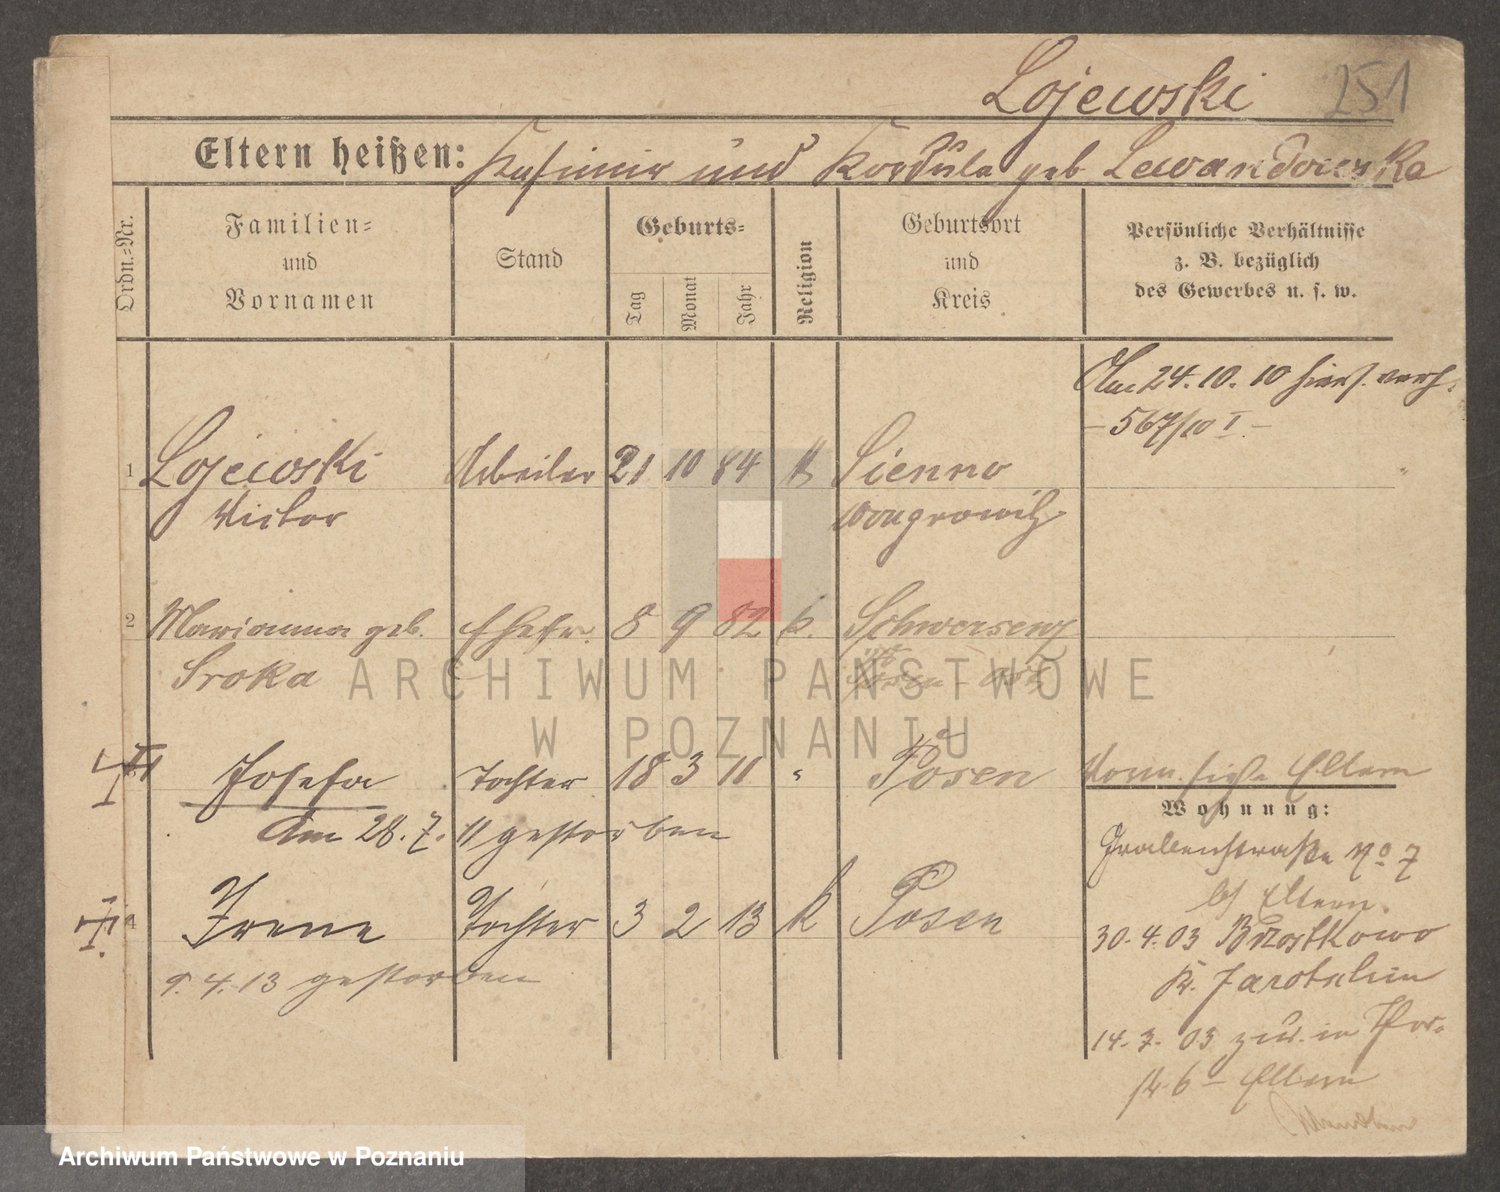 Lojewski 251
Eltern heißen: Kasimir und Kordula geb Lewandowska
Ordn.=Nr.
Familien=
und
Vornamen
Stand
Geburts=
Tag
Monat
Jahr
Religion
Geburtsort
und
Kreis
Persönliche Verhältnisse
z. B. bezüglich
des Gewerbes u. s. w.
Am 24. 10. 10 hiers. verh.
- 567/10 I. -
1 Lojewski Arbeiter 21 10 84 k Sienno
Victor Wongrowitz
2 Marianna geb. Ehefr. 8 9 82 k. Schwersenz
Sroka Posen - Ost
Josefa Tochter 18 3 11 " Posen
Am 28. 7. 11 gestorben
Vorm. siehe Eltern
Wohnung:
Grabenstraße No 7
bei Eltern.
4 Irene Tochter 3 2 13 k Posen
9. 4. 13 gestorben
30. 4. 03 Brzostkowo
Kr. Jarotschin
14. 7. 03 zur. in
6 - Eltern
ARCHIWUM PAŃSTWOWE
W POZNANIU
Archiwum Państwowe w Poznaniu